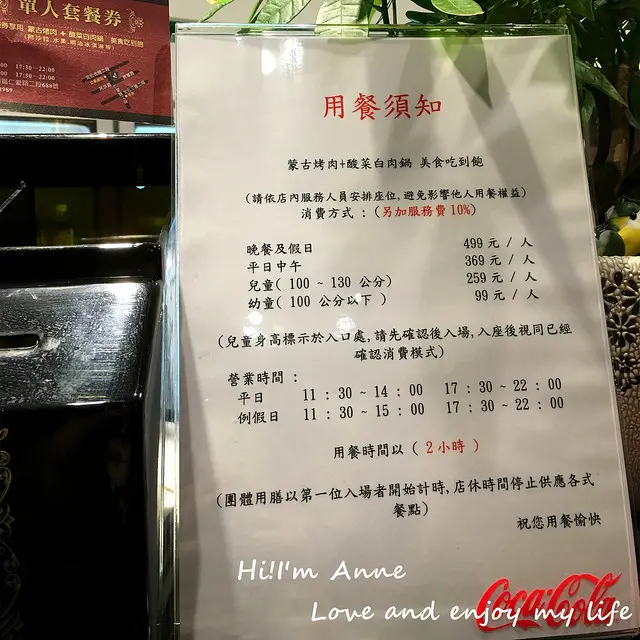 單人套餐券
蒙古烤肉 + 酸菜白肉鍋 美食吃到飽
17:30~22:00
17:30~22:00
用餐須知
蒙古烤肉+酸菜白肉鍋 美食吃到飽
(請依店內服務人員安排座位,避免影響他人用餐權益)
消費方式：(另加服務費10%)
晚餐及假日 499 元 / 人
平日中午 369 元 / 人
兒童( 100 ~ 130 公分) 259 元 / 人
幼童( 100 公分以下 ) 99 元 / 人
(兒童身高標示於入口處,請先確認後入場,入座後視同已經
確認消費模式)
營業時間：
平日 11：30 ~ 14：00 17：30 ~ 22：00
例假日 11：30 ~ 15：00 17：30 ~ 22：00
用餐時間以 ( 2小時 )
(團體用膳以第一位入場者開始計時,店休時間停止供應各式
餐點)
祝您用餐愉快
Hi!I'm Anne
Coca-Cola
Love and enjoy my life